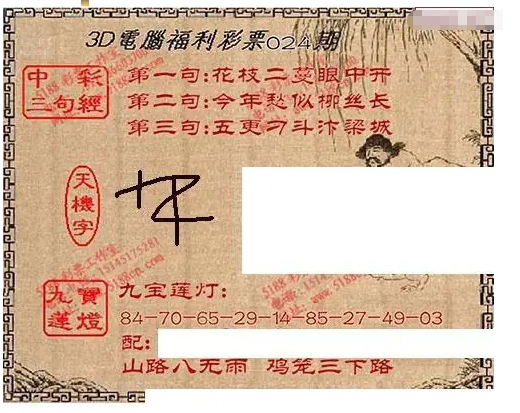 3D電腦福利彩票024期
中彩三句經
第一句:花枝二莫眼中开
第二句:今年愁似柳丝长
第三句:五更刁斗汴梁城
天機字
九寶蓮燈
九宝莲灯:
84-70-65-29-14-85-27-49-03
配:
山路八无雨 鸡笼三下路